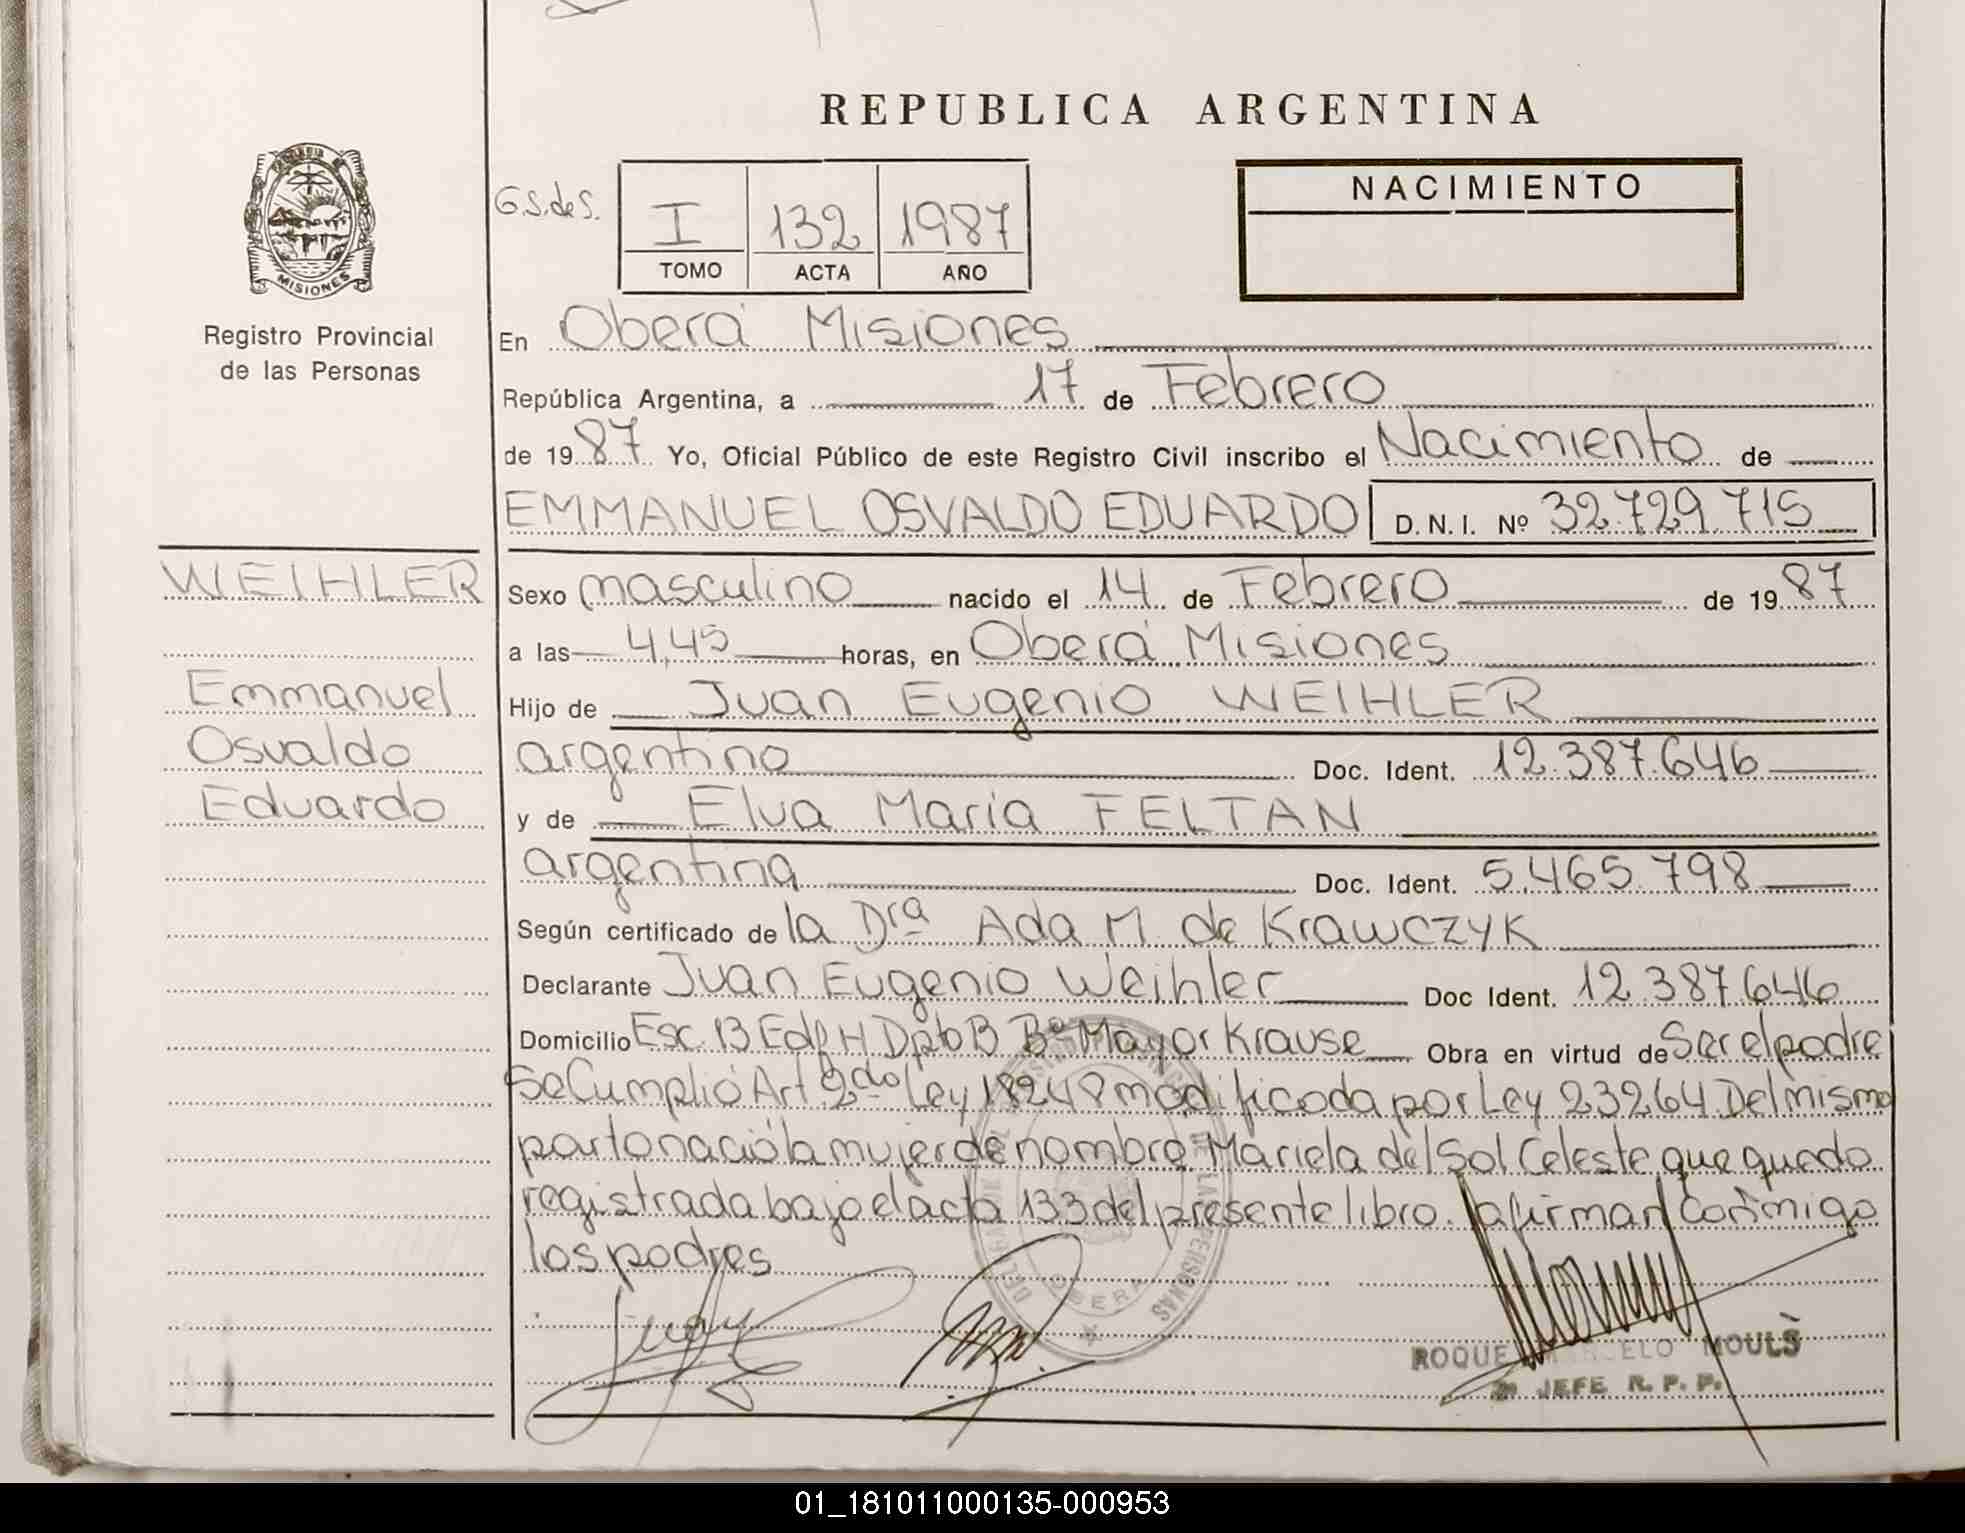 REPUBLICA ARGENTINA
PROVINCIA DE
MISIONES
Registro Provincial
de las Personas
G.S.deS.
I 132 1987
TOMO ACTA AÑO
NACIMIENTO
En Oberá Misiones
República Argentina, a 17 de Febrero
de 1987 Yo, Oficial Público de este Registro Civil inscribo el Nacimiento de
EMMANUEL OSVALDO EDUARDO D.N.I. Nº 32.729.715
WEIHLER
Emmanuel
Osvaldo
Eduardo
Sexo masculino nacido el 14 de Febrero de 1987
a las 4,45 horas, en Oberá Misiones
Hijo de Juan Eugenio WEIHLER
argentino Doc. Ident. 12.387.646
y de Elva María FELTAN
argentina Doc. Ident. 5.465.798
Según certificado de la Dra Ada M. de Krawczyk
Declarante Juan Eugenio Weihler Doc Ident. 12.387.646
Domicilio Esc. 13 Edf H Dpto B Bº Mayor Krause Obra en virtud de Ser el padre
Se Cumplió Art 2do Ley 18248 modificada por Ley 23264 Del mismo
parto nació la mujer de nombre Mariela del Sol Celeste que quedo
registrada bajo el acta 133 del presente libro. firman conmigo
los padres
DE LAS PERSONAS
OBERA
ROQUE MARCELO MOULS
2º JEFE R. P. P.
01_181011000135-000953